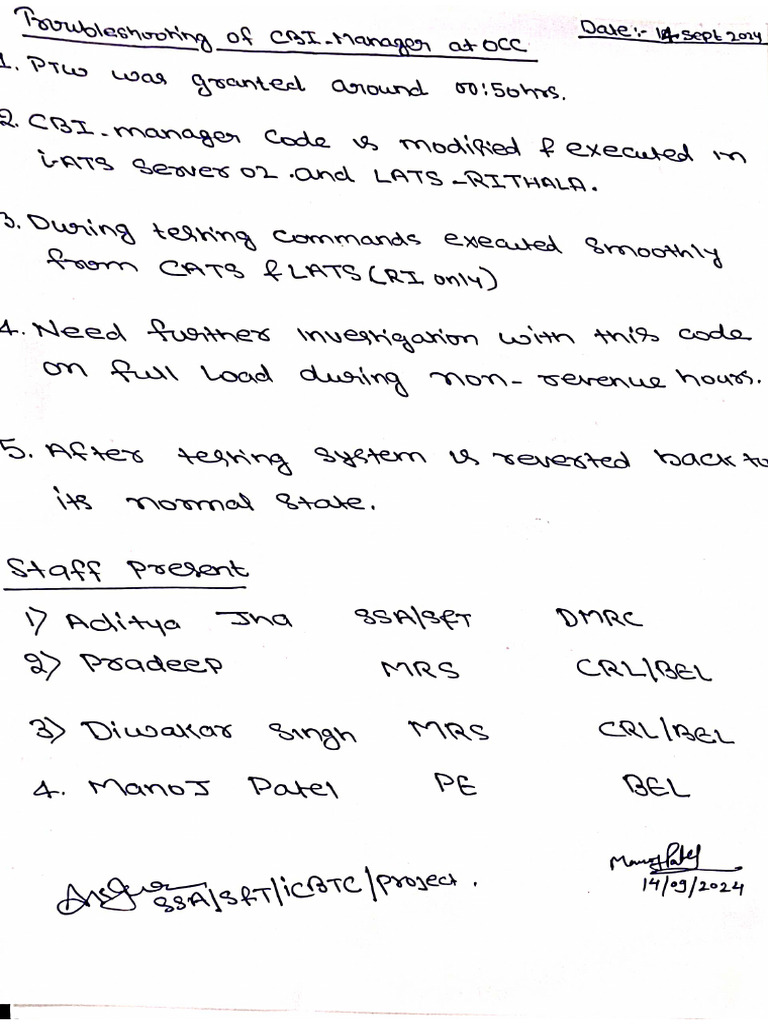 Troubleshooting of CBI-Manager at OCC Date:- 14 Sept 2024
1. PTW was granted around 00:50hrs.
2. CBI-manager code is modified & executed in
i-ATS Server 02 .and LATS-RITHALA.
3. During testing commands executed smoothly
from CATS & LATS (RI only)
4. Need further investigation with this code
on full load during non-revenue hours.
5. After testing system is reverted back to
its normal state.
Staff present
1) Aditya Jha SSA/S&T DMRC
2) Pradeep MRS CRL/BEL
3) Diwakar Singh MRS CRL/BEL
4. Manoj Patel PE BEL
Manoj Patel
SSA/S&T/iCBTC/project.
14/09/2024